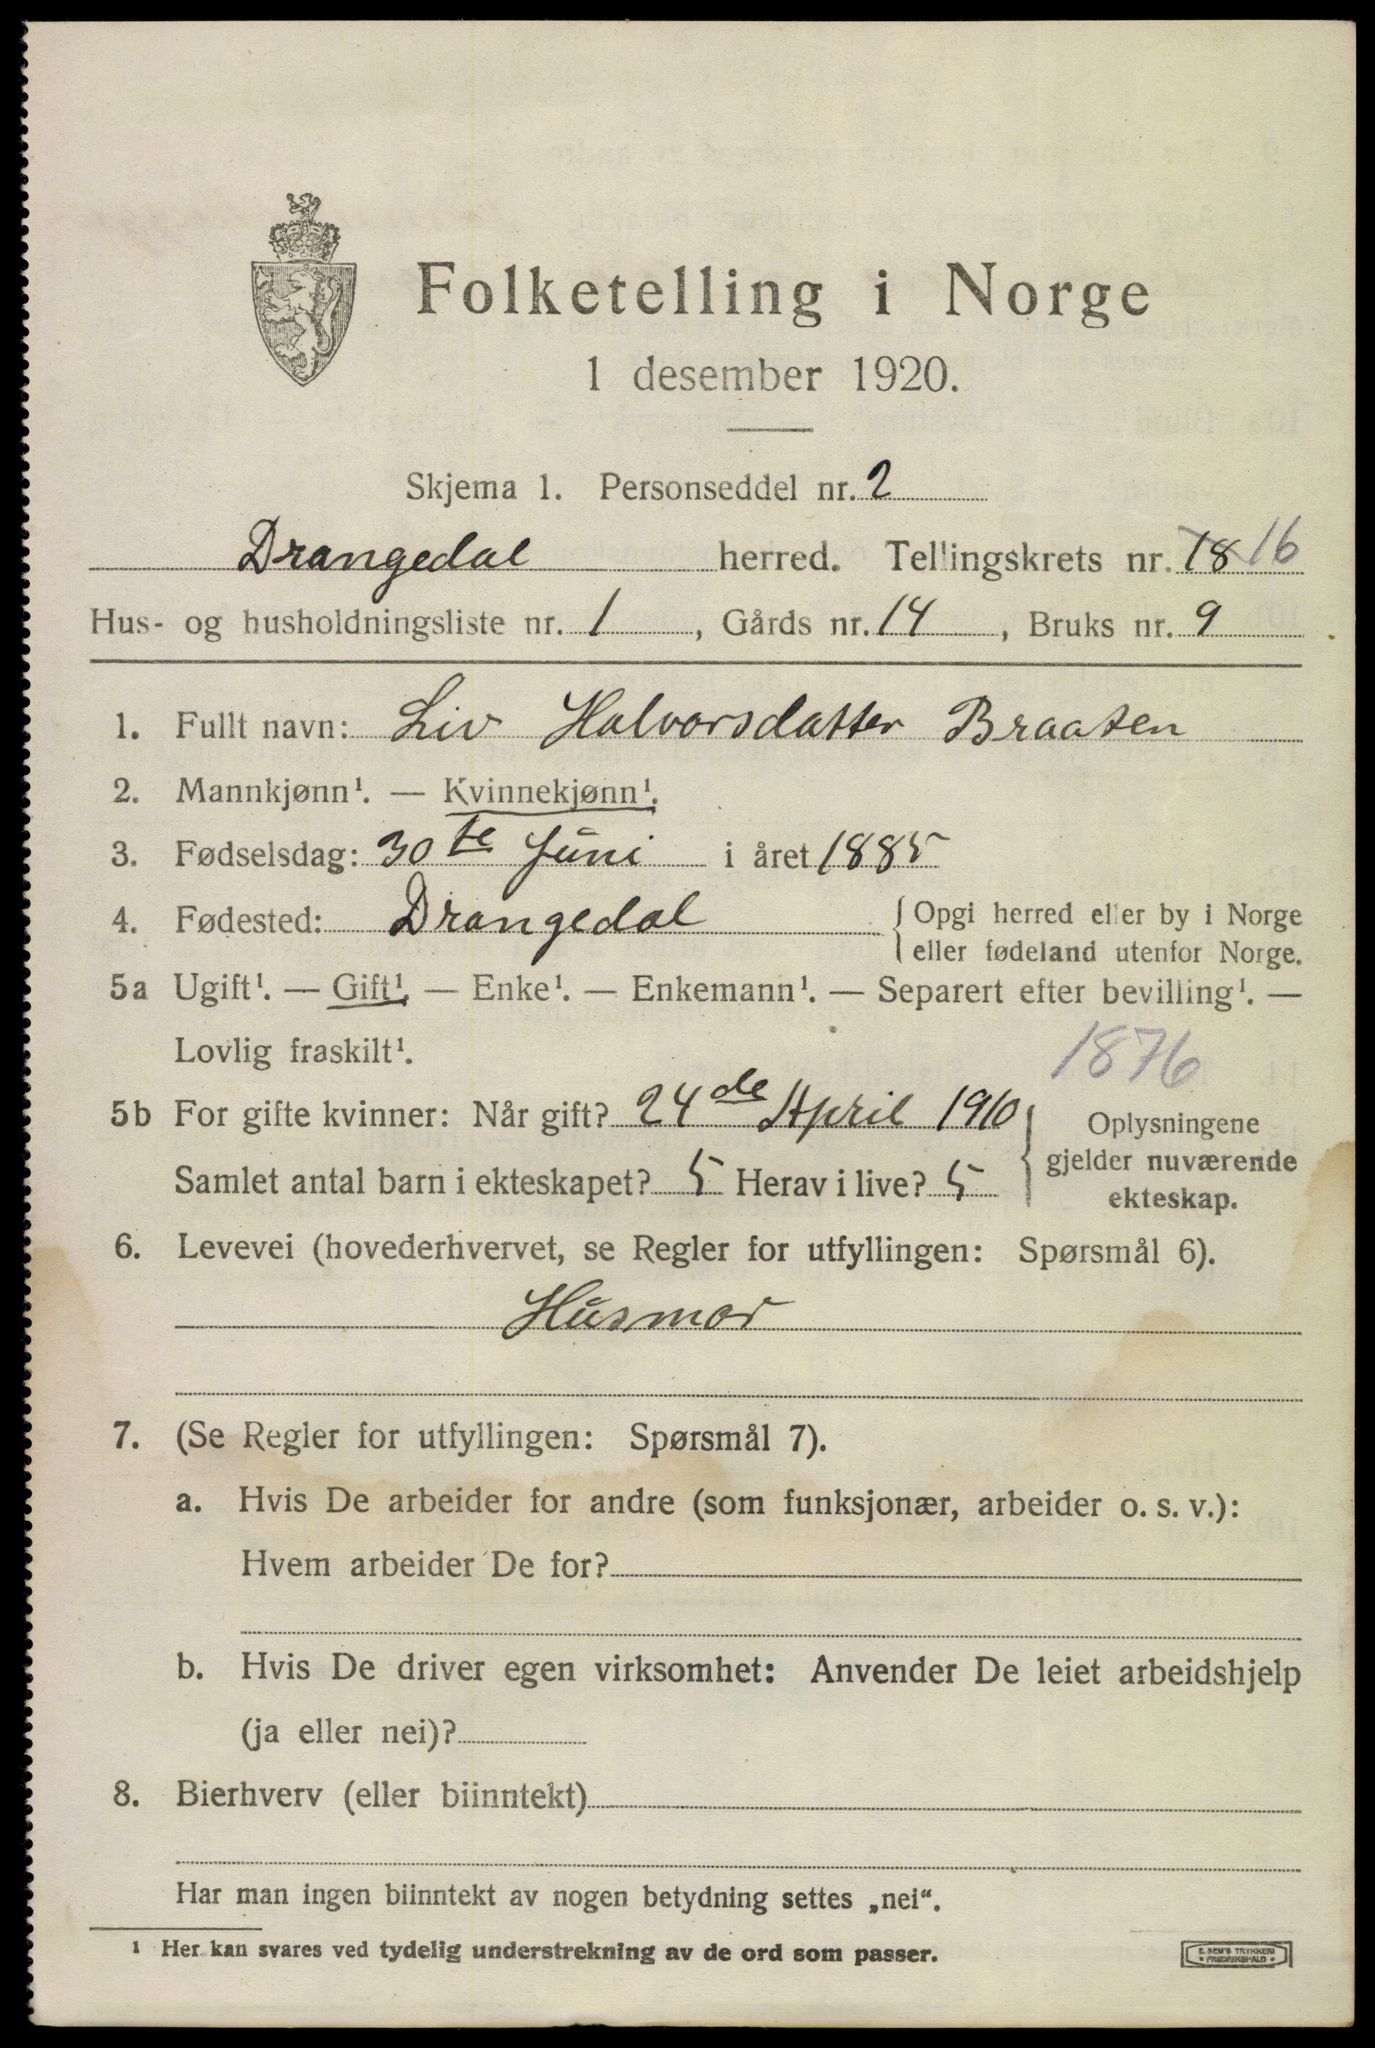 Folketelling i Norge
1 desember 1920.
Skjema 1. Personseddel nr. 2
Drangedal herred. Tellingskrets nr. 18 16
Hus- og husholdningsliste nr. 1, Gårds nr. 14, Bruks nr. 9
1. Fullt navn: Liv Halvorsdatter Braaten
2. Mannkjønn¹. — Kvinnekjønn¹.
3. Fødselsdag: 30te Juni i året 1885
4. Fødested: Drangedal {Opgi herred eller by i Norge
eller fødeland utenfor Norge.
5a Ugift¹. — Gift¹. — Enke¹. — Enkemann¹. — Separert efter bevilling¹. —
Lovlig fraskilt¹.
1876
5b For gifte kvinner: Når gift? 24de April 1910 { Oplysningene
gjelder nuværende
Samlet antal barn i ekteskapet? 5 Herav i live? 5
ekteskap.
6. Levevei (hovederhvervet, se Regler for utfyllingen: Spørsmål 6).
Husmor
7. (Se Regler for utfyllingen: Spørsmål 7).
a. Hvis De arbeider for andre (som funksjonær, arbeider o. s. v.):
Hvem arbeider De for?
b. Hvis De driver egen virksomhet: Anvender De leiet arbeidshjelp
(ja eller nei)?
8. Bierhverv (eller biinntekt)
Har man ingen biinntekt av nogen betydning settes „nei“.
¹ Her kan svares ved tydelig understrekning av de ord som passer.
E. SEM'S TRYKKERI
FREDRIKSHALD